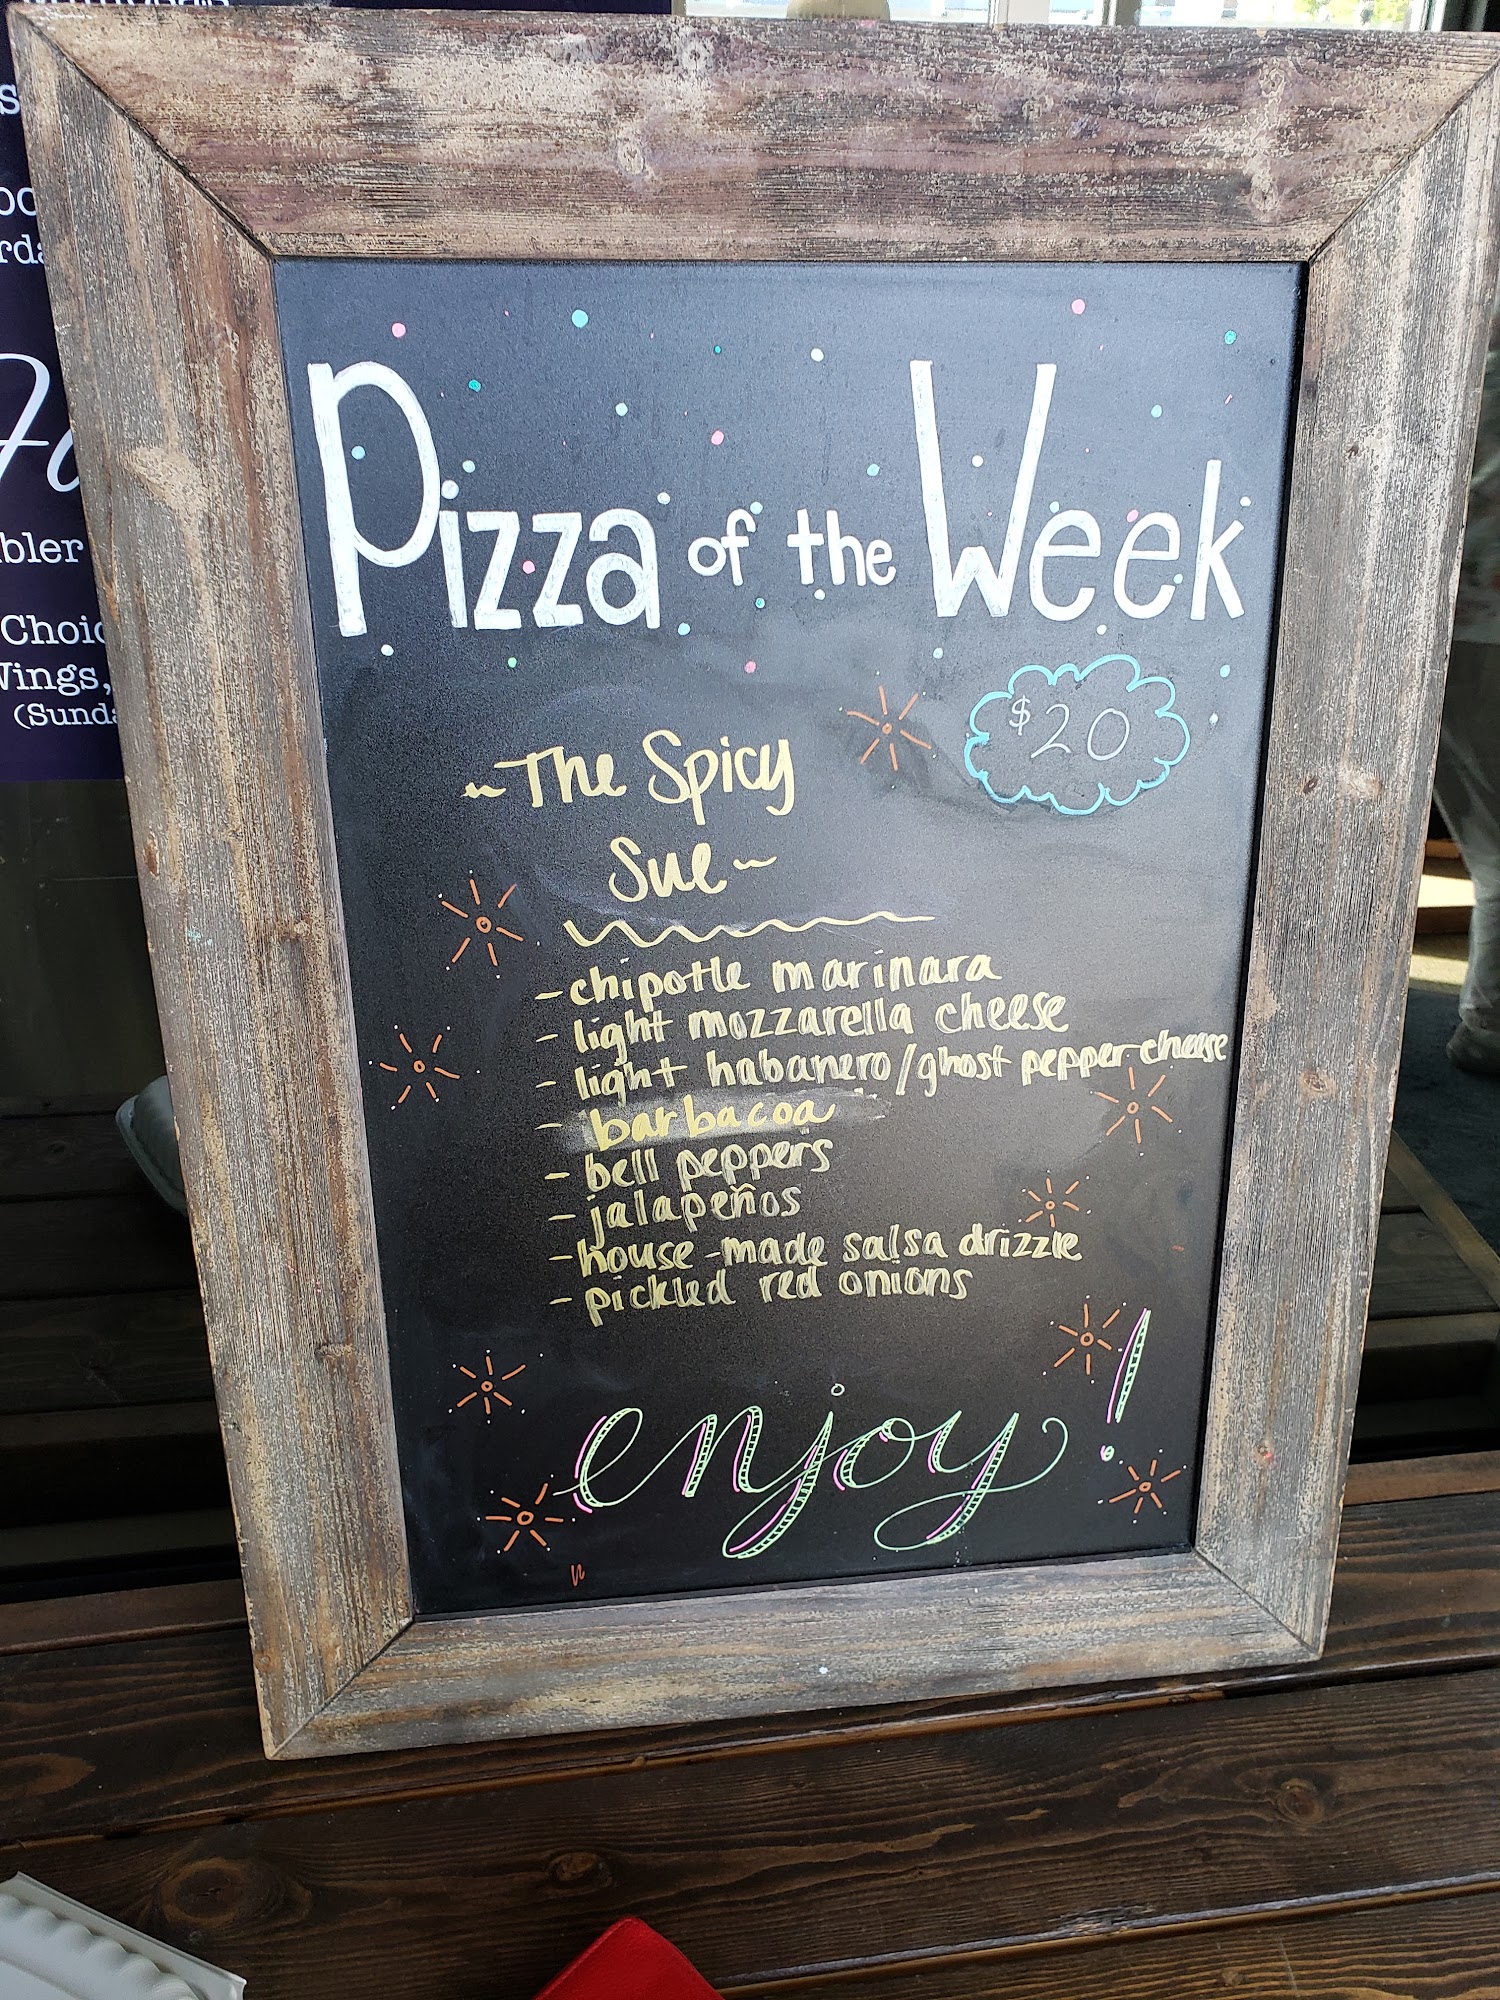 Pizza of the Week
$20
~The Spicy
Sue~
-chipotle marinara
-light mozzarella cheese
-light habanero/ghost pepper cheese
-barbacoa
-bell peppers
-jalapeños
-house-made salsa drizzle
-pickled red onions
enjoy!
bler
Choic
Wings,
(Sunda